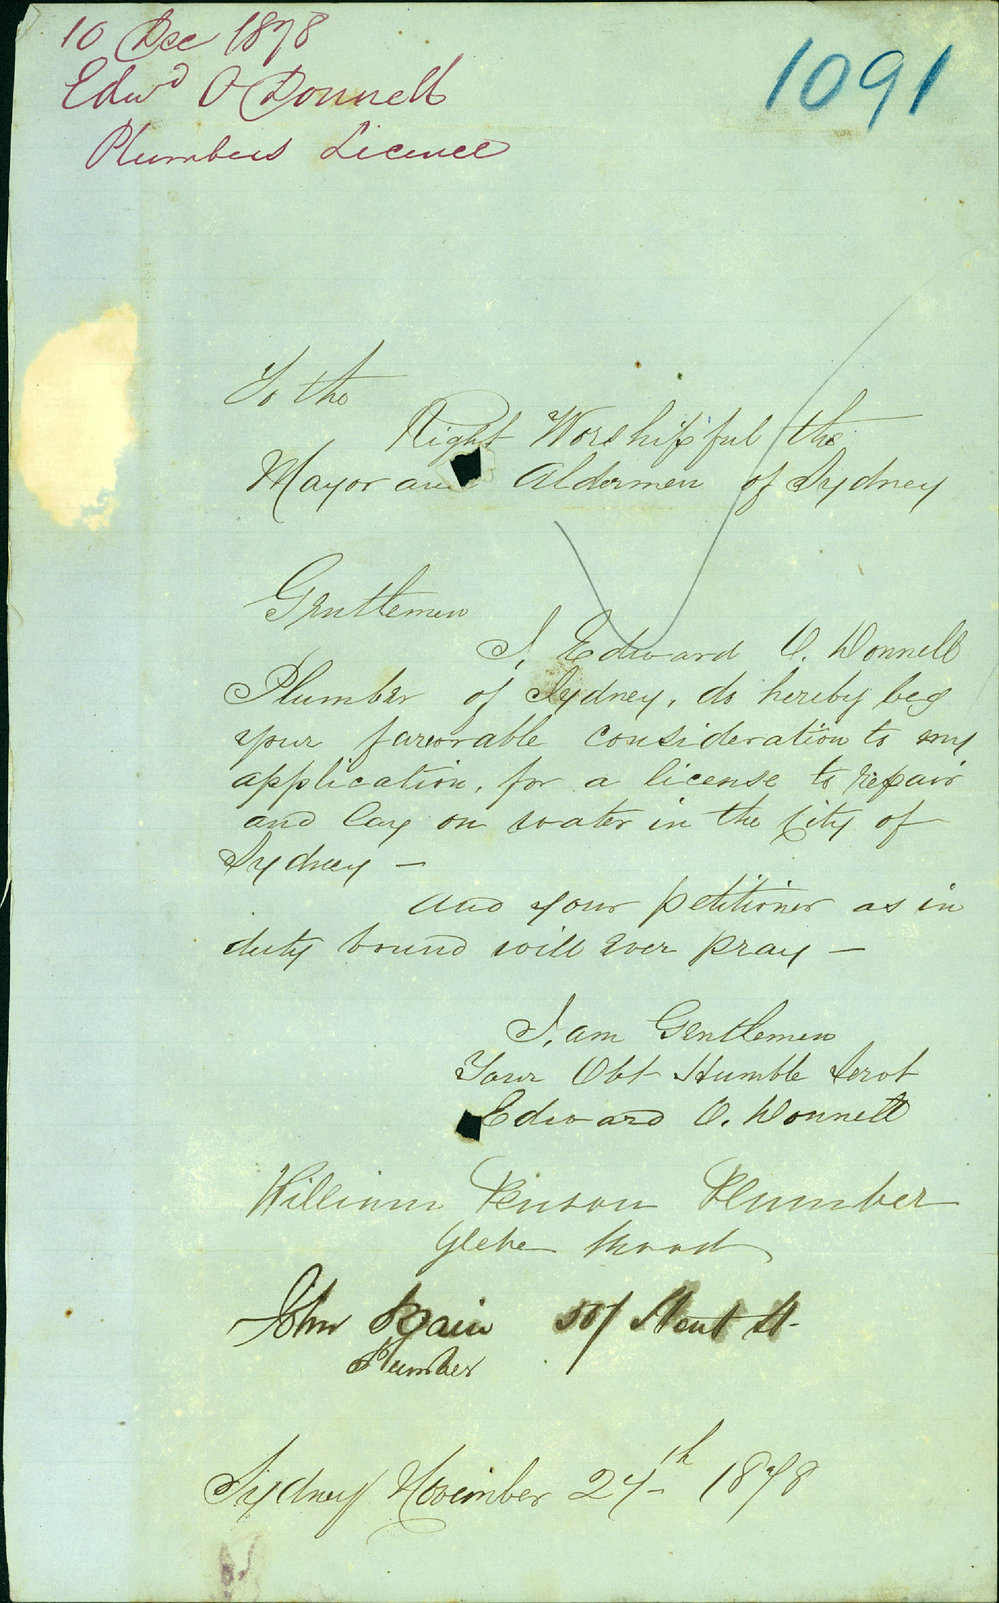 10 Dec 1878
Edwd O Donnell
Plumbers Licence
1091
To the
Right Worshipful the
Mayor and Aldermen of Sydney
Gentlemen
I, Edward O. Donnell
Plumber of Sydney, do hereby beg
your favorable consideration to my
application, for a license to repair
and lay on water in the City of
Sydney —
And your petitioner as in
duty bound will ever pray —
I, am Gentlemen
Your Obt Humble Servt
Edward O. Donnell
William Plumber
Glebe Road
John Kent St
Plumber
Sydney November 27th 1878